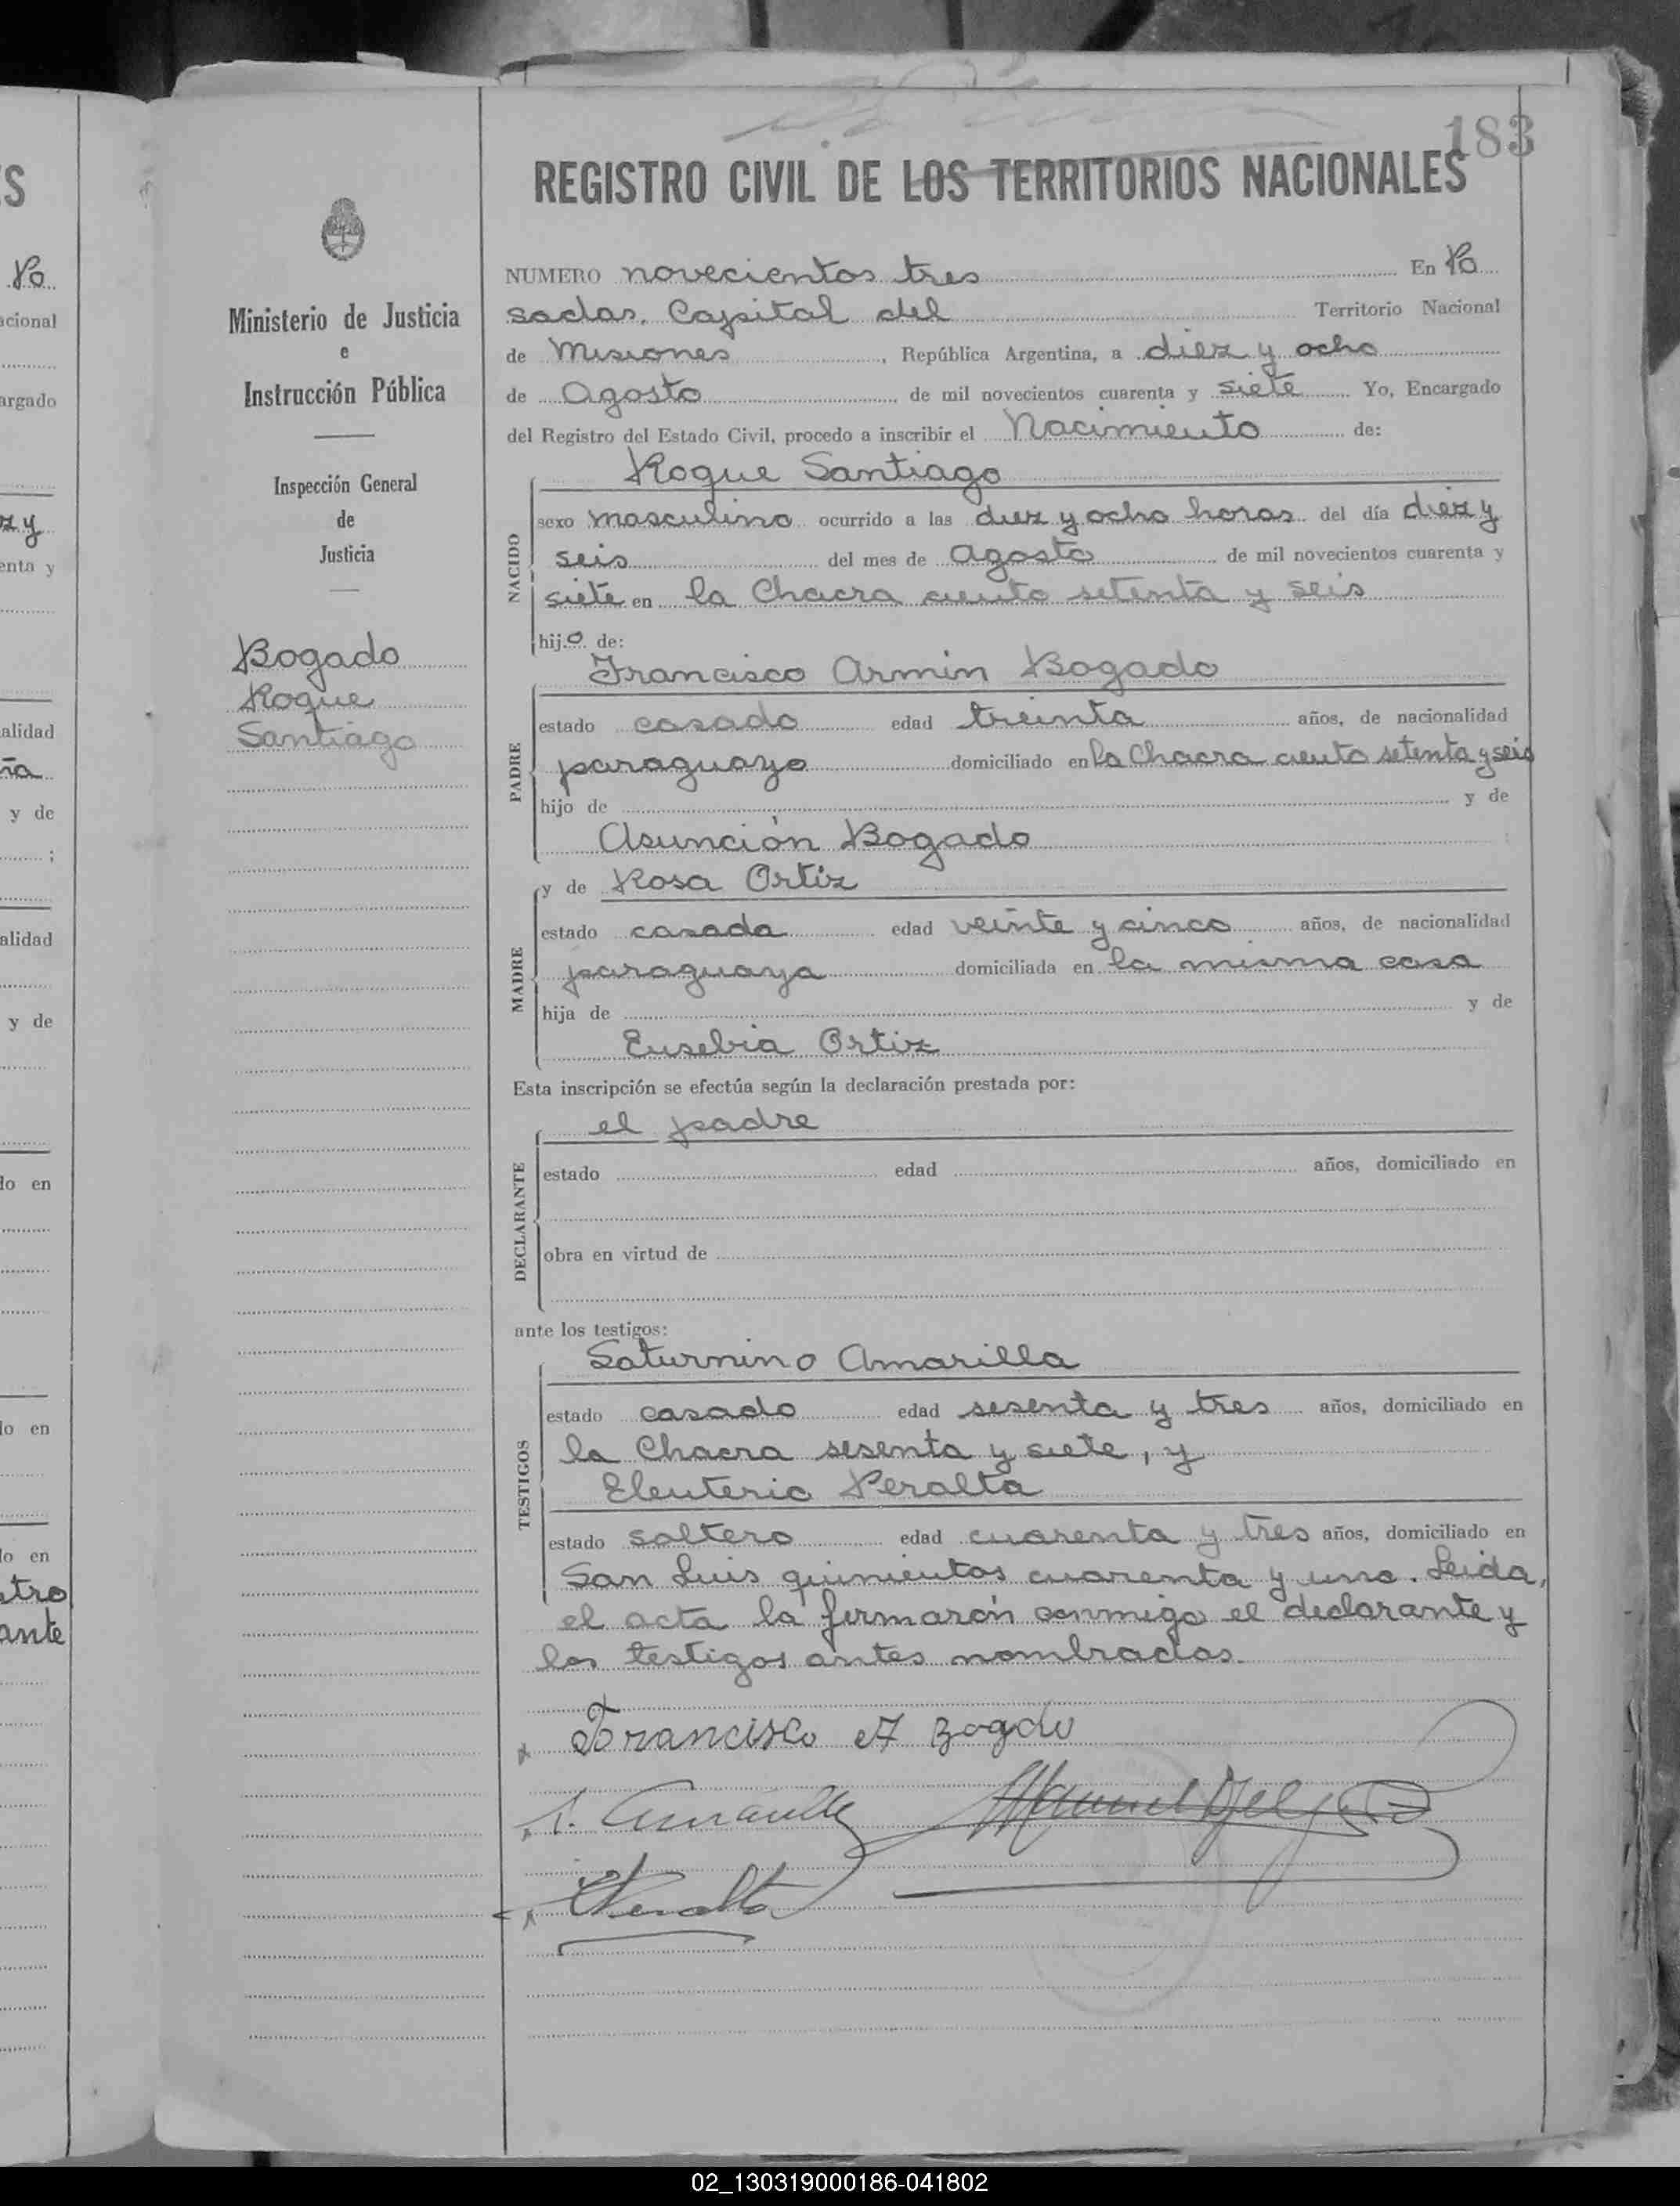 183
REGISTRO CIVIL DE LOS TERRITORIOS NACIONALES
Ministerio de Justicia
e
Instrucción Pública
Inspección General
de
Justicia
Bogado
Roque
Santiago
NUMERO novecientos tres En Po
sadas, Capital del Territorio Nacional
de Misiones, República Argentina, a diez y ocho
de Agosto de mil novecientos cuarenta y siete Yo, Encargado
del Registro del Estado Civil, procedo a inscribir el Nacimiento de:
Roque Santiago
NACIDO
sexo masculino ocurrido a las diez y ocho horas del día diez y
seis del mes de Agosto de mil novecientos cuarenta y
siete en la Chacra ciento setenta y seis
hijo de:
Francisco Armin Bogado
PADRE
estado casado edad treinta años, de nacionalidad
paraguayo domiciliado en la Chacra ciento setenta y seis
hijo de y de
Asunción Bogado
y de Rosa Ortiz
MADRE
estado casada edad veinte y cinco años, de nacionalidad
paraguaya domiciliada en la misma casa
hija de y de
Eusebia Ortiz
Esta inscripción se efectúa según la declaración prestada por:
el padre
DECLARANTE
estado edad años, domiciliado en
obra en virtud de
ante los testigos:
Saturnino Amarilla
TESTIGOS
estado casado edad sesenta y tres años, domiciliado en
la Chacra sesenta y siete, y
Eleuterio Peralta
estado soltero edad cuarenta y tres años, domiciliado en
San Luis quinientos cuarenta y uno. Leida,
el acta la firmarón conmigo el declarante y
los testigos antes nombrados.
Francisco A Bogdo
S. Amarilla
E Peralta
S
Po
acional
argado
zy
enta y
alidad
ña
y de
;
alidad
y de
do en
do en
do en
stro
ante
02_130319000186-041802